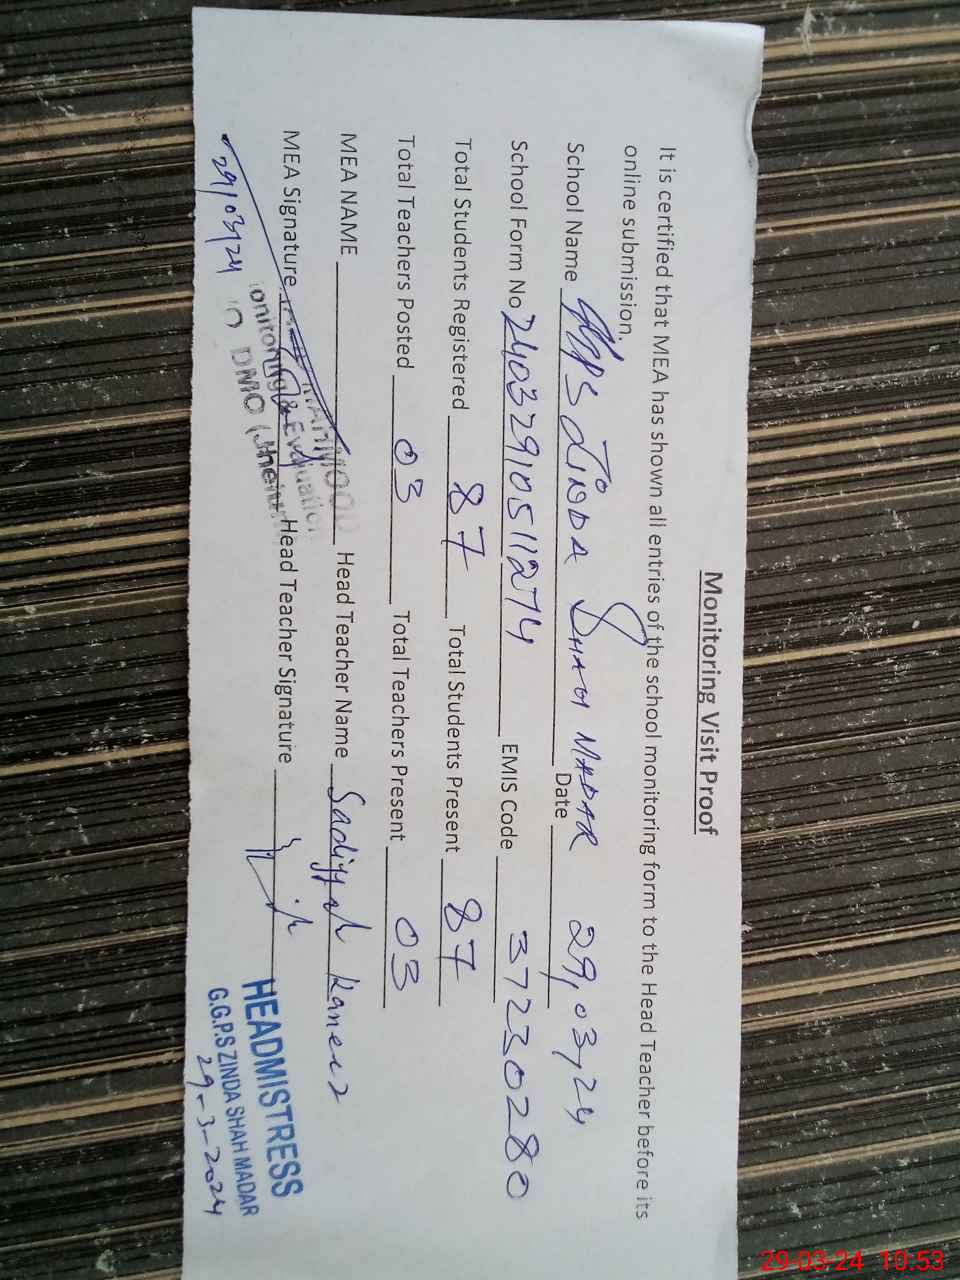 Monitoring Visit Proof
It is certified that MEA has shown all entries of the school monitoring form to the Head Teacher before its
online submission.
School Name GGPS ZINDA SHAH MADAR Date 29,03,24
School Form No 24032910511274 EMIS Code 37230280
Total Students Registered 87 Total Students Present 87
Total Teachers Posted 03 Total Teachers Present 03
MEA NAME Head Teacher Name Sadiyyah Kaneez
MEA Signature Head Teacher Signature
MAHMOOD
Monitoring & Evaluation
DMO
29/03/24
HEADMISTRESS
G.G.P.S ZINDA SHAH MADAR
29-3-2024
29-03-24 10:53